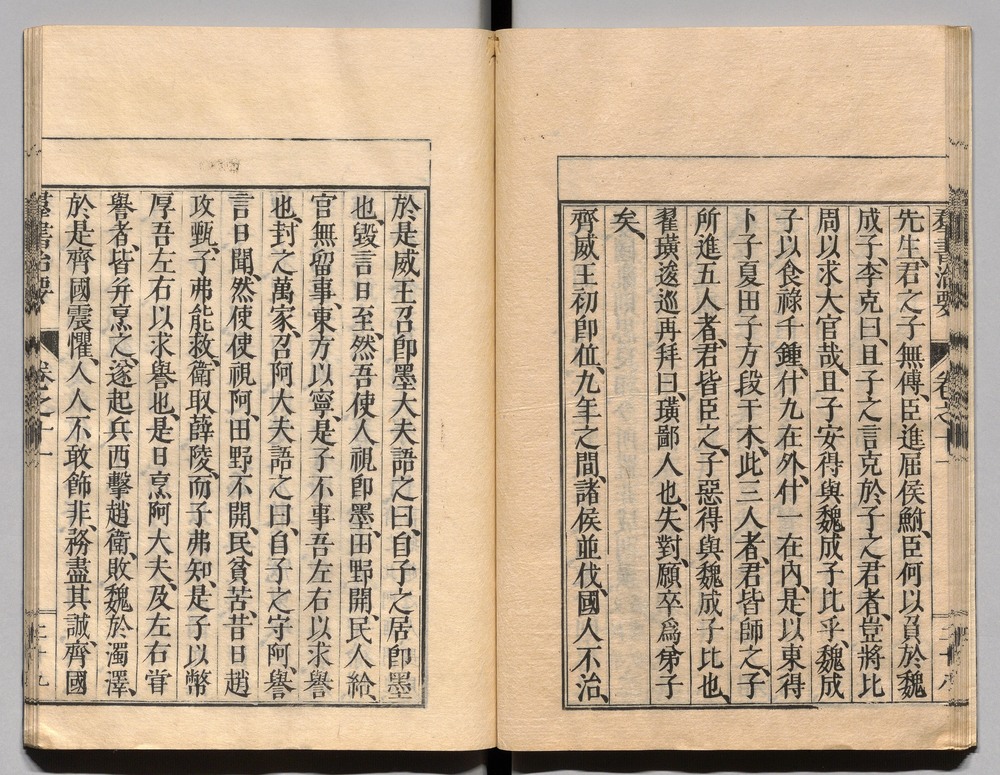 羣書治要 卷之十一 二十八
先生、君之子無傅、臣進屈侯鮒、臣何以負於魏
成子、李克曰、且子之言克於子之君者、豈將比
周以求大官哉、且子安得與魏成子比乎、魏成
子以食祿千鍾、什九在外、什一在內、是以東得
卜子夏田子方段干木、此三人者、君皆師之、子
所進五人者、君皆臣之、子惡得與魏成子比也、
翟璜逡巡再拜曰、璜鄙人也、失對、願卒爲弟子
矣、
齊威王初卽位、九年之間、諸侯並伐、國人不治、
於是威王召卽墨大夫語之曰、自子之居卽墨
也、毀言日至、然吾使人視卽墨、田野開、民人給、
官無留事、東方以寧、是子不事吾左右以求譽
也、封之萬家、召阿大夫語之曰、自子之守阿、譽
言日聞、然使使視阿、田野不開、民貧苦、昔日趙
攻甄、子弗能救、衛取薛陵、而子弗知、是子以幣
厚吾左右以求譽也、是日烹阿大夫、及左右甞
譽者、皆幷烹之、遂起兵西擊趙衛、敗魏於濁澤、
於是齊國震懼、人人不敢飾非、務盡其誠、齊國
羣書治要 卷之十一 二十九